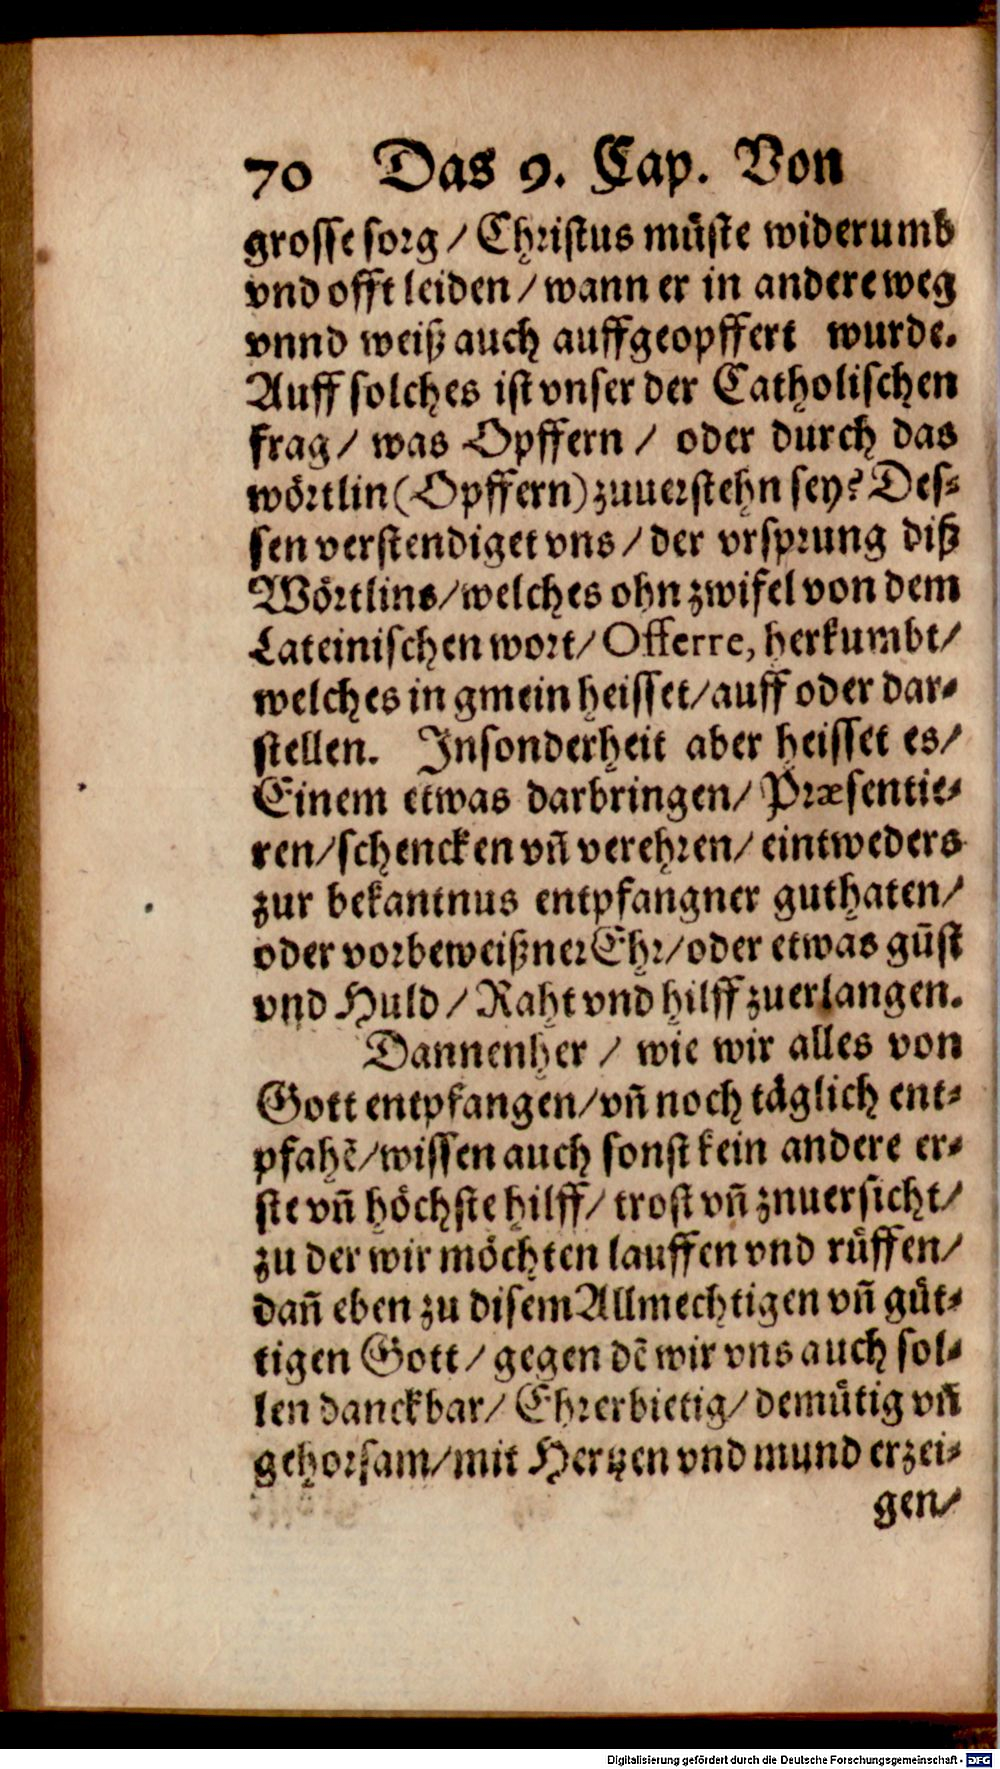 70 Das 9. Cap. Von
grosse sorg / Christus müste widerumb
vnd offt leiden / wann er in andere weg
vnnd weiß auch auffgeopffert wurde.
Auff solches ist vnser der Catholischen
frag / was Opffern / oder durch das
wörtlin (Opffern) zuuerstehn sey? Des-
sen verstendiget vns / der vrsprung diß
Wörtlins / welches ohn zwifel von dem
Lateinischen wort / Offerre, herkumbt /
welches in gmein heisset / auff oder dar-
stellen. Jnsonderheit aber heisset es /
Einem etwas darbringen / Præsentie-
ren / schencken vñ verehren / eintweders
zur bekantnus entpfangner guthaten /
oder vorbeweißner Ehr / oder etwas gūst
vnd Huld / Raht vnd hilff zuerlangen.
Dannenher / wie wir alles von
Gott entpfangen / vñ noch täglich ent-
pfahē / wissen auch sonst kein andere er-
ste vñ höchste hilff / trost vñ znuersicht /
zu der wir möchten lauffen vnd rüffen /
dañ eben zu disem Allmechtigen vñ güt-
tigen Gott / gegen dē wir vns auch sol-
len danckbar / Ehrerbietig / demütig vñ
gehorsam / mit Hertzen vnd mund erzei-
gen /
Digitalisierung gefördert durch die Deutsche Forschungsgemeinschaft - DFG